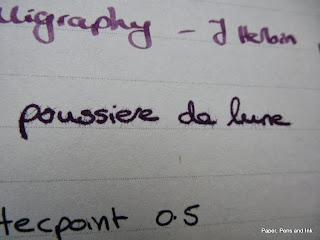 lligraphy - J Herbin
poussiere de lune
tecpoint 0.5
Paper, Pens and Ink